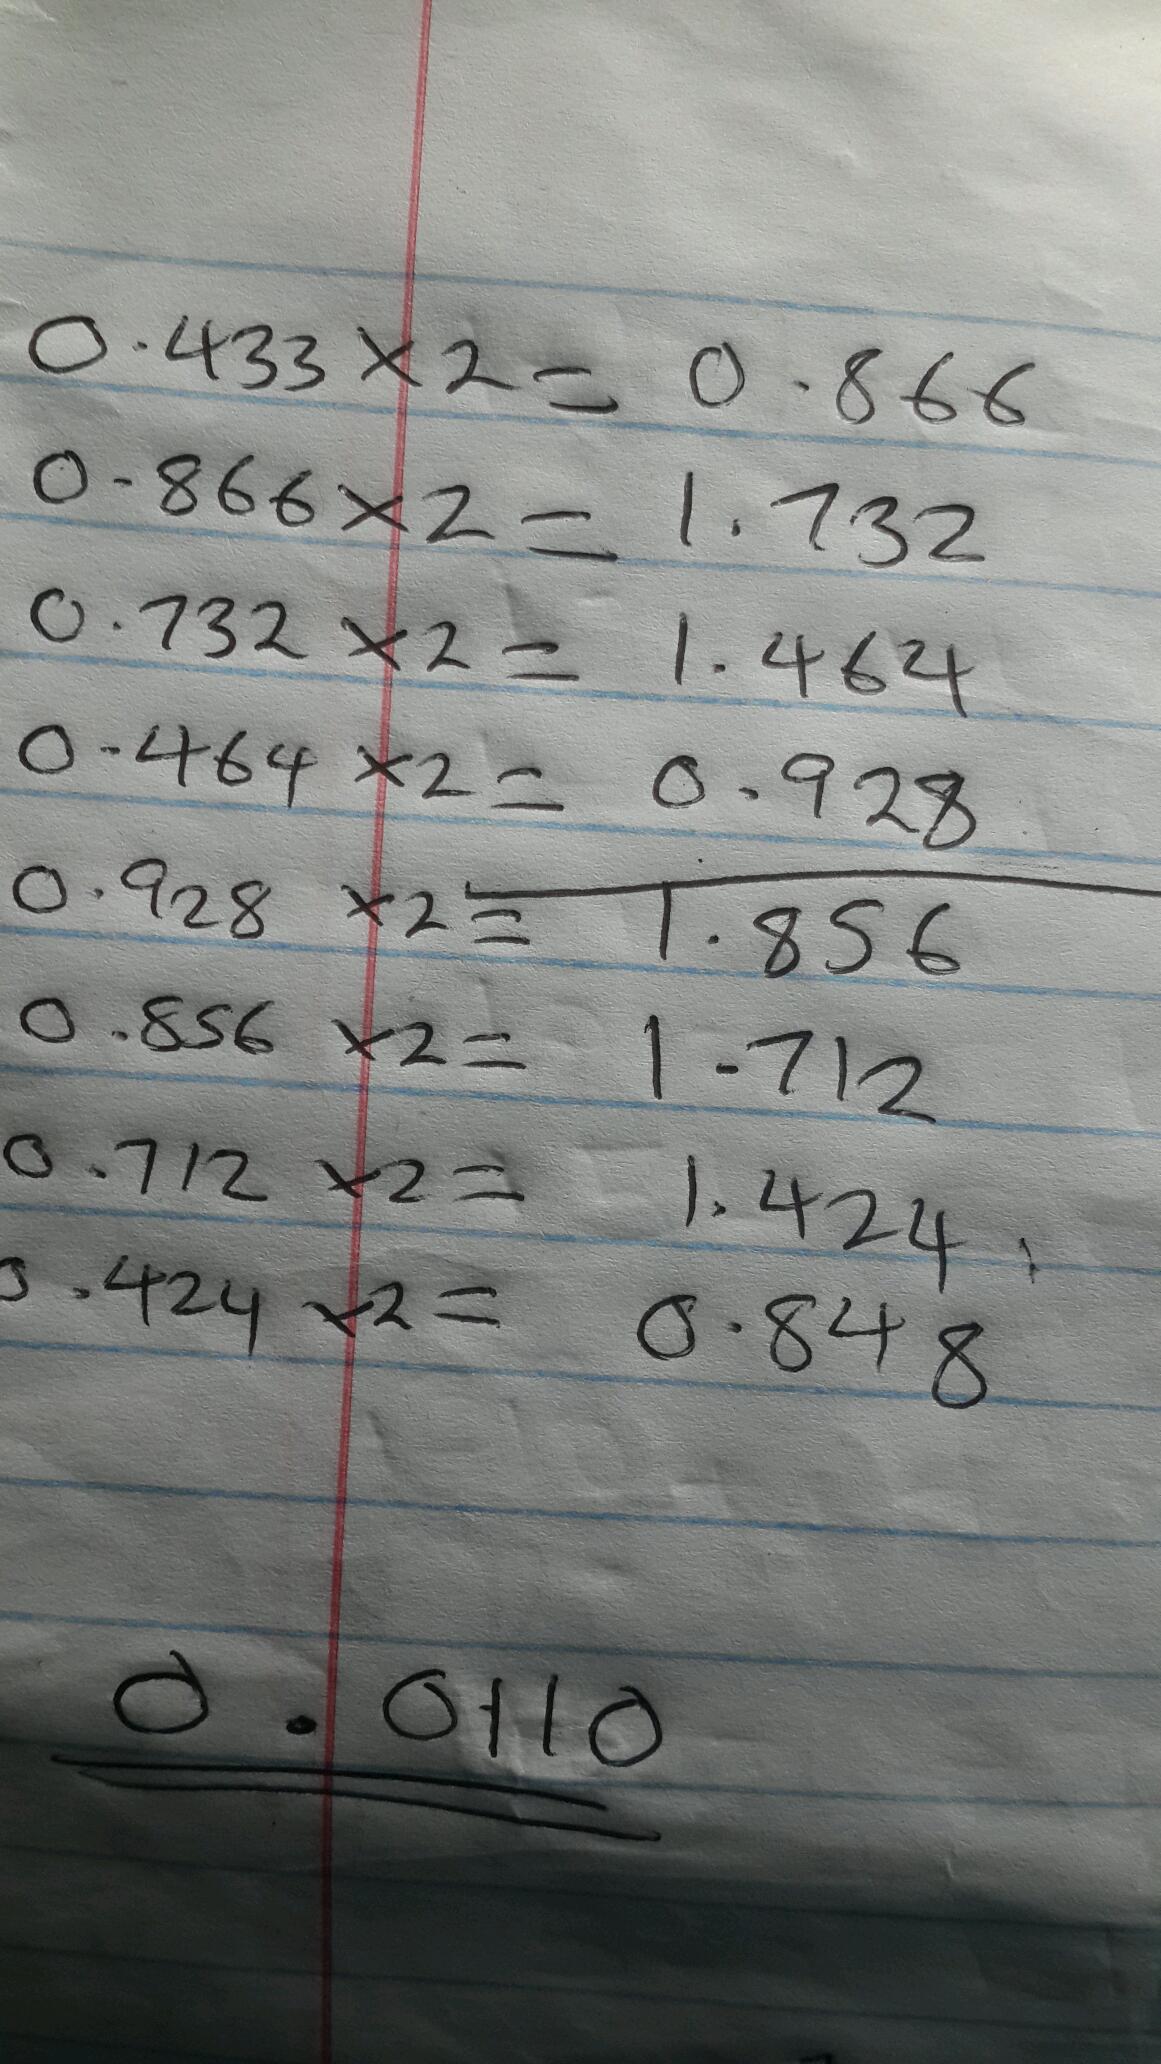 0.433 × 2 = 0.866
0.866 × 2 = 1.732
0.732 × 2 = 1.464
0.464 × 2 = 0.928
0.928 × 2 = 1.856
0.856 × 2 = 1.712
0.712 × 2 = 1.424
0.424 × 2 = 0.848
0.0110